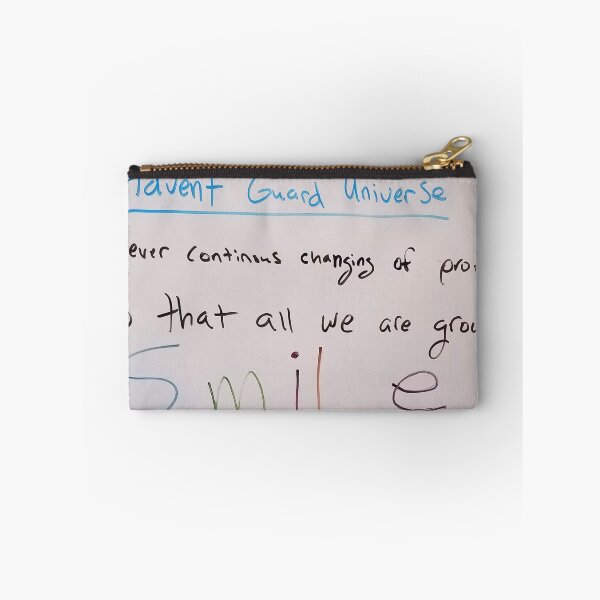 Havent Guard Universe
ever continous changing of pro
that all we are grou
Smile